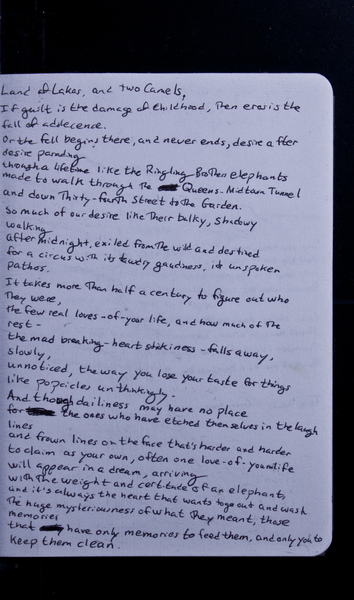 Land of Lakas, and two Camels,
If guilt is the damage of childhood, Then eros is the
fall of addecence.
Or the fell begins there, and never ends, desire after
desire parading
through a lifetime like the Ringling Brothers elephants
made to walk through the Queens-Midtown Tunnel
and down Thirty-fourth Street to the Garden.
So much of our desire like their bulky, shadowy
walking
after midnight, exiled from the wild and destined
for a circus with its tawdry gaudiness, its unspoken
Pathos.
It takes more Than half a century to figure out who
They were,
the few real loves-of-your life, and how much of the
rest-
the mad breaking-heart stickiness-falls away,
slowly,
unnoticed, the way you lose your taste for things
like popcicles unthinkingly.
And though dailiness may have no place
for the ones who have etched themselves in the laugh
lines
and frown lines on the face that's harder and harder
to claim as your own, often one love-of-your-life
will appear in a dream, arriving
with the weight and certitude of an elephant,
and it's always the heart that wants to go out and wash
The huge mysteriousness of what They meant, those
memories
that have only memories to feed them, and only you to
keep them clean.